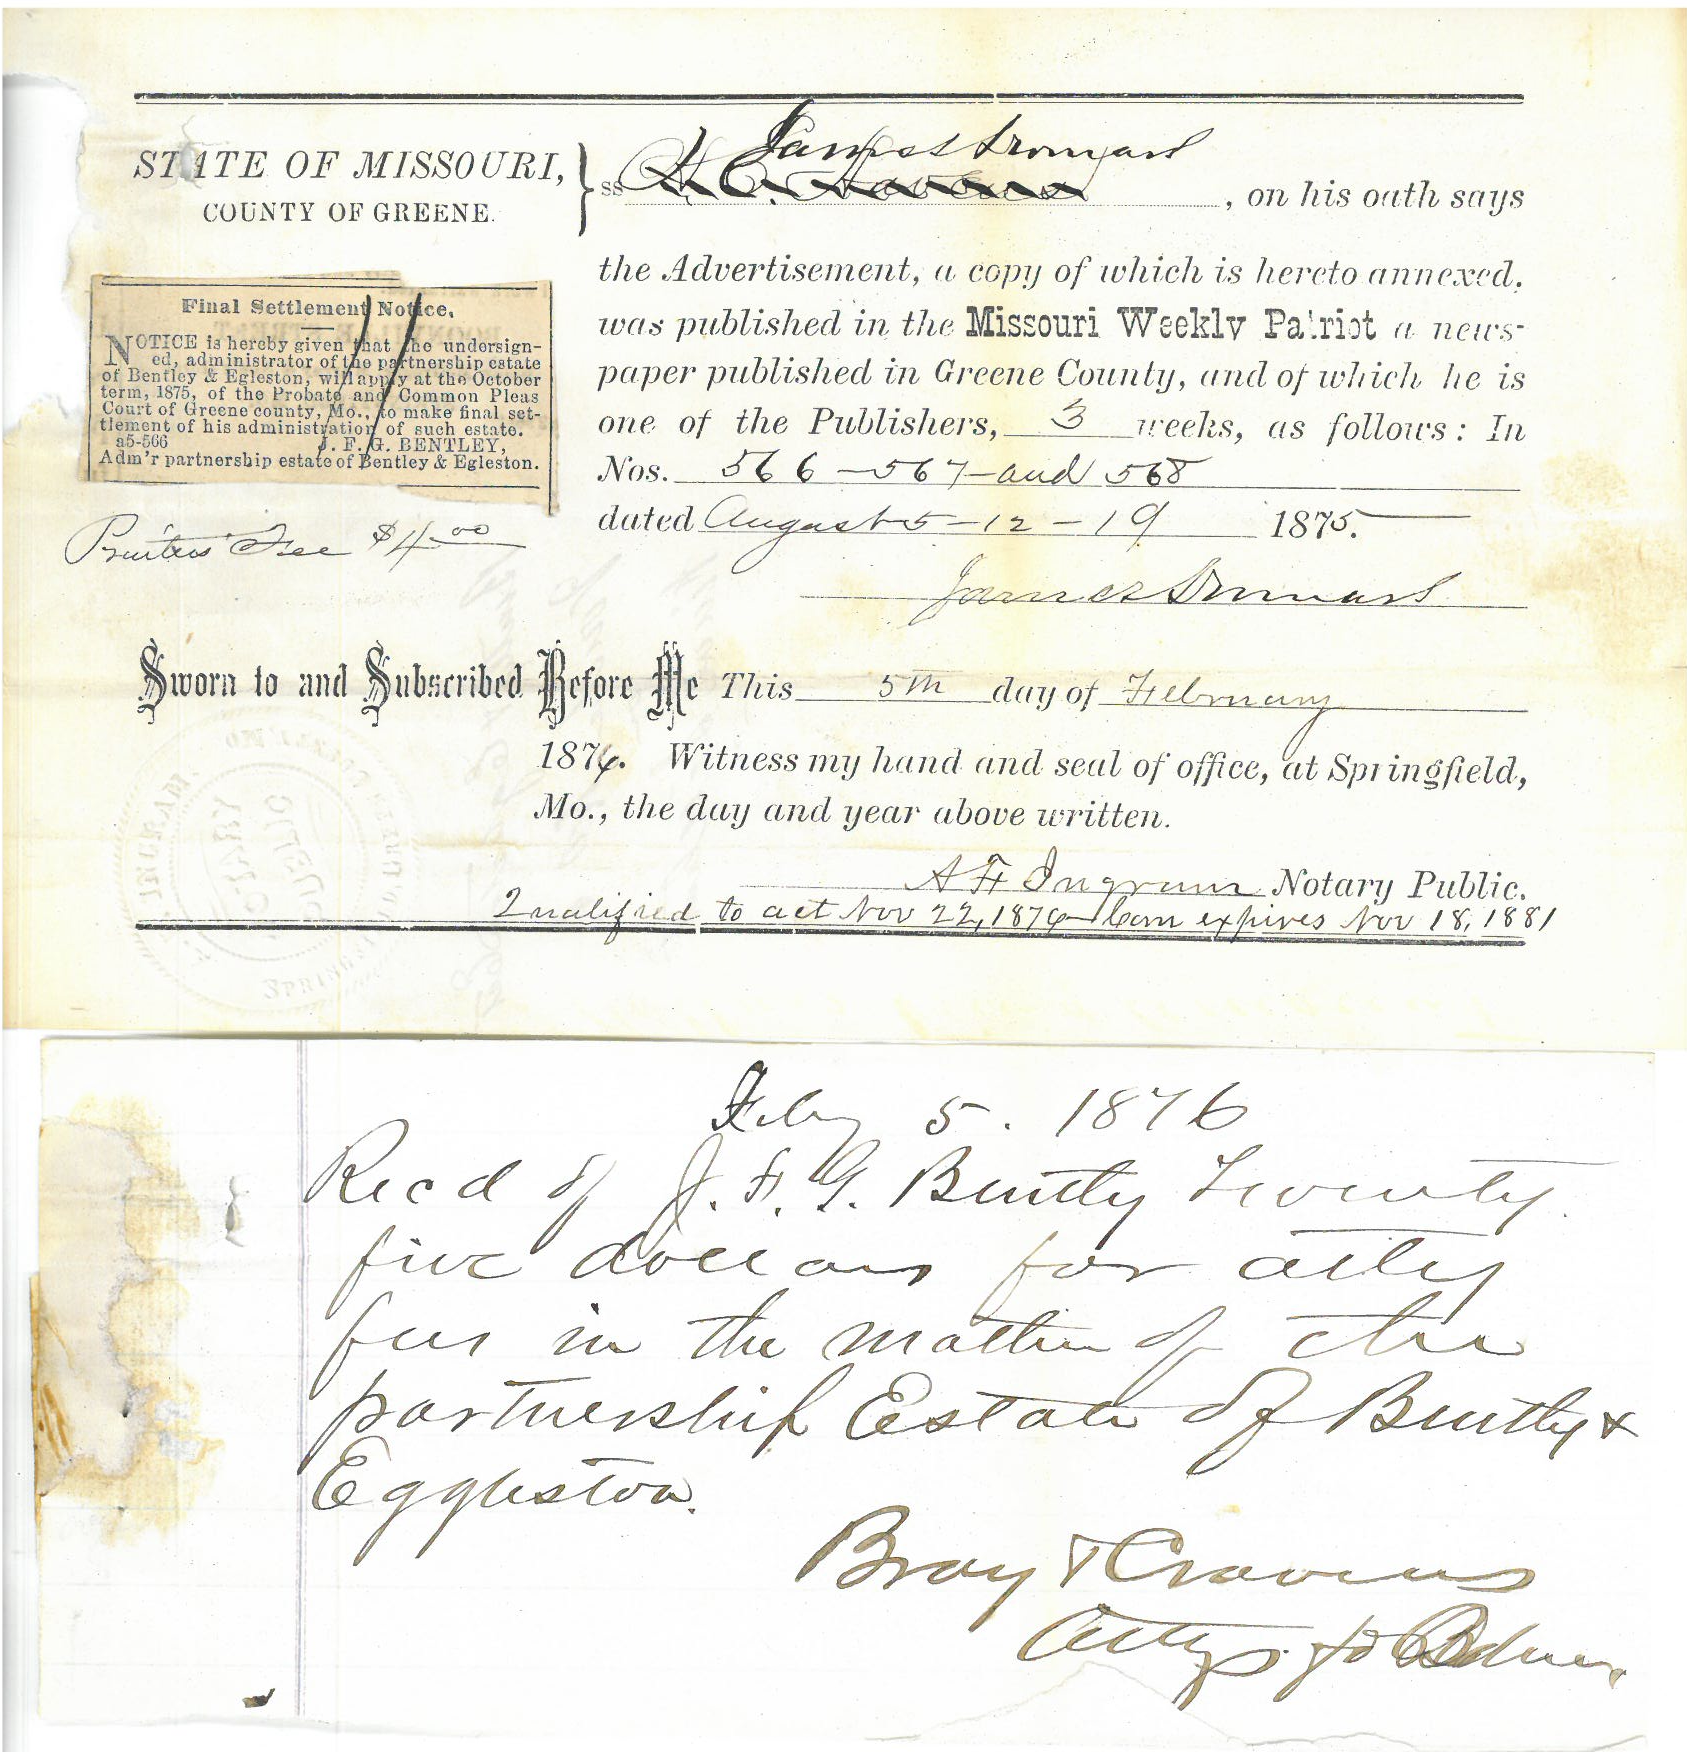 STATE OF MISSOURI,
COUNTY OF GREENE.
ss
James
, on his oath says
the Advertisement, a copy of which is hereto annexed,
was published in the Missouri Weekly Patriot a news-
paper published in Greene County, and of which he is
one of the Publishers, 3 weeks, as follows: In
Nos. 566-567-and 568
dated August 5-12-19 1875.
James
Final Settlement Notice.
NOTICE is hereby given that the undersign-
ed, administrator of the partnership estate
of Bentley & Egleston, will apply at the October
term, 1875, of the Probate and Common Pleas
Court of Greene county, Mo., to make final set-
tlement of his administration of such estate.
a5-566 J. F. G. BENTLEY,
Adm'r partnership estate of Bentley & Egleston.
Printers' Fee $4.00
Sworn to and Subscribed Before Me This 5th day of February
1876. Witness my hand and seal of office, at Springfield,
Mo., the day and year above written.
A F Ingram Notary Public.
Qualified to act Nov 22, 1876 Com expires Nov 18, 1881
Feby 5. 1876
Recd of J. F. G. Bently Twenty
five dollars for atty
fees in the matter of the
partnership Estate of Bently &
Eggleston.
Bray & Cravens
Attys for Admr.